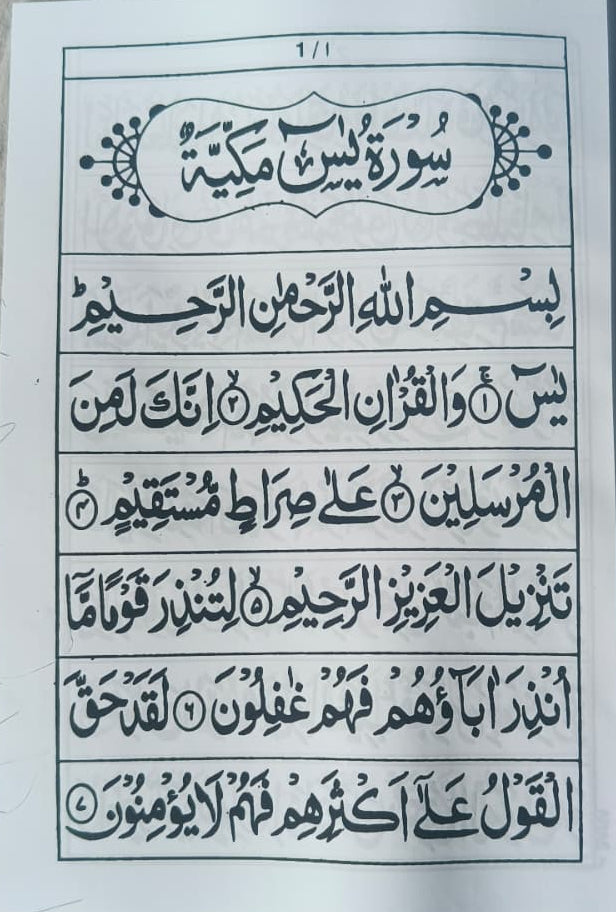 1/١
سُوْرَةُ يٰسٓ مَكِّيَّةٌ
بِسْمِ اللّٰهِ الرَّحْمٰنِ الرَّحِيْمِ ؕ
يٰسٓ ۚ‏﴿۱﴾ وَالْقُرْاٰنِ الْحَكِيْمِ ۙ‏﴿۲﴾ اِنَّكَ لَمِنَ
الْمُرْسَلِيْنَ ۙ‏﴿۳﴾ عَلٰى صِرَاطٍ مُّسْتَقِيْمٍ ؕ‏﴿۴﴾
تَنْزِيْلَ الْعَزِيْزِ الرَّحِيْمِ ۙ‏﴿۵﴾ لِتُنْذِرَ قَوْمًا مَّاۤ
اُنْذِرَ اٰبَآؤُهُمْ فَهُمْ غٰفِلُوْنَ ‏﴿۶﴾ لَقَدْ حَقَّ
الْقَوْلُ عَلٰٓى اَكْثَرِهِمْ فَهُمْ لَا يُؤْمِنُوْنَ ‏﴿۷﴾